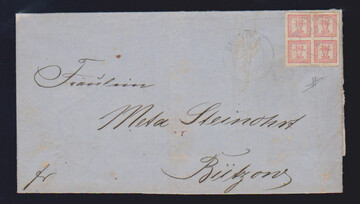 Fräulein
Meta Steinohrt
Bützow
fr